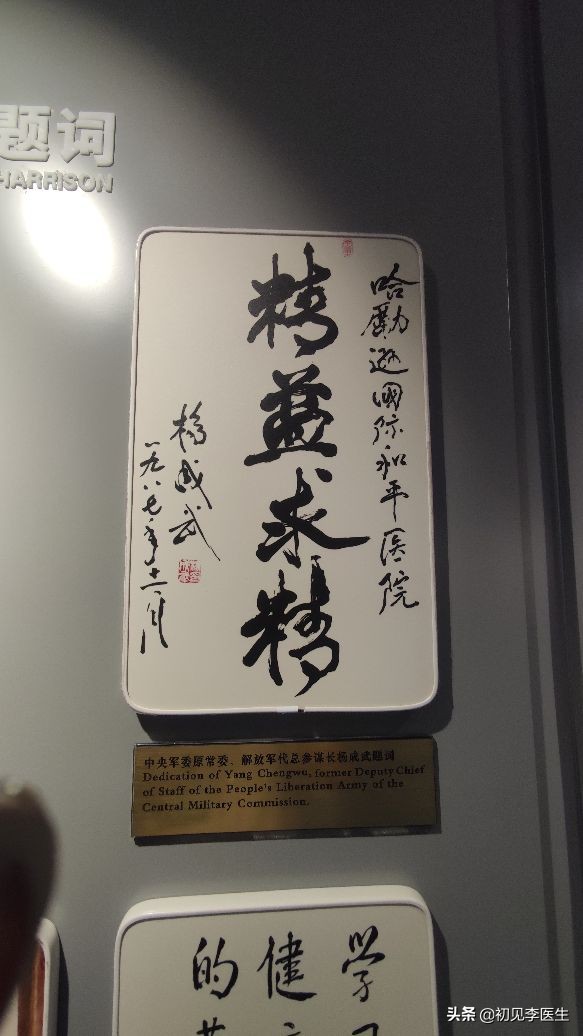 题词
HARRISON
哈勵逊國际和平医院
精益求精
杨成武
一九八七年十一月
中央军委原常委、解放军代总参谋长杨成武题词
Dedication of Yang Chengwu, former Deputy Chief
of Staff of the People's Liberation Army of the
Central Military Commission.
学
健
的
头条 @初见李医生